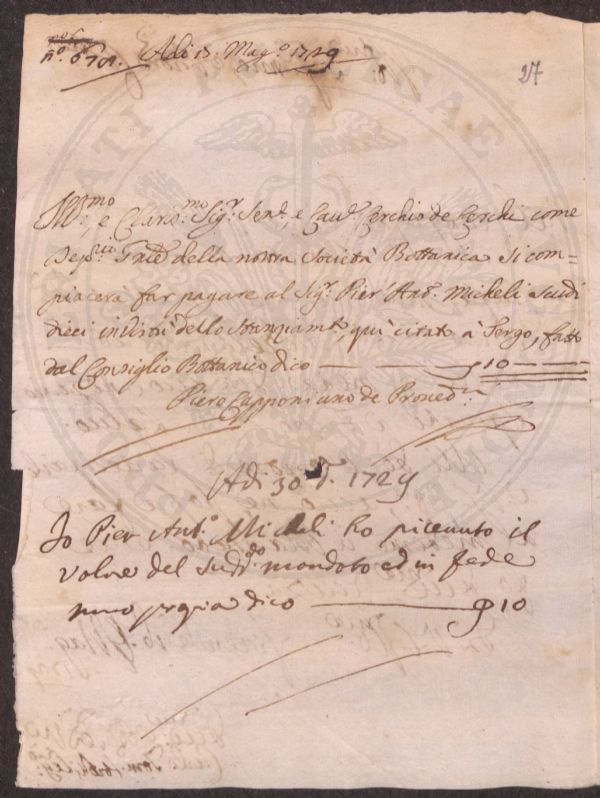 Adì 13. Mag.º 1729
27
Ill.mo, e Claris.mo Sig.r Sen.e, e Cav.r Cerchio de Cerchi come
Dep.rio della nostra Società Bottanica si com=
piacerà far pagare al Sig.r Pier' Ant.º Micheli scudi
dieci in virtù dello stanziam.to, qui citato à Tergo, fatto
dal Consiglio Bottanico dico — — — 10 — —
Piero Capponi uno de Proved.ri
Adì 30 d.º 1729
Io Pier Ant.º Micheli ho riceuuto il
valore del sud.do mandato ed in fede
mano propria dico — 10